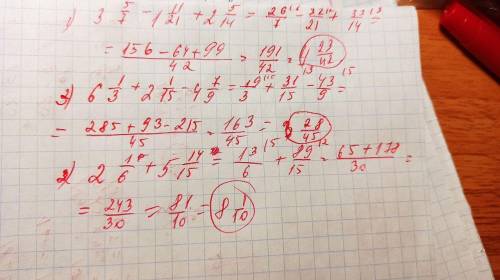 1) 3 5/7 - 1 11/21 + 2 5/14 = 26/7 - 32/21 + 33/14 =
= 156 - 64 + 99 / 42 = 191/42 = 23/42
3) 6 1/3 + 2 1/15 - 4 7/9 = 19/3 + 31/15 - 43/9 =
= 285 + 93 - 215 / 45 = 163/45 = 3 28/45
2) 2 1/6 + 5 14/15 = 13/6 + 89/15 = 65 + 178 / 30 =
= 243/30 = 81/10 = 8 1/10